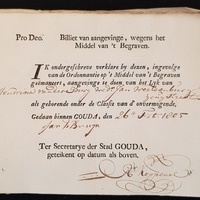 Pro Deo. Billiet van aangevinge, wegens het
Middel van 't Begraven.
IK ondergeschreve verklare by dezen, ingevolge
van de Ordonnantie op 't Middel van 't Begraven
geëmaneert, aangevinge te doen van het Lyk van
als gehorende onder de Classis van d'onvermogende.
Gedaan binnen GOUDA, den 26 Oct 1805
Ter Secretarye der Stad GOUDA,
geteikent op datum als boven.